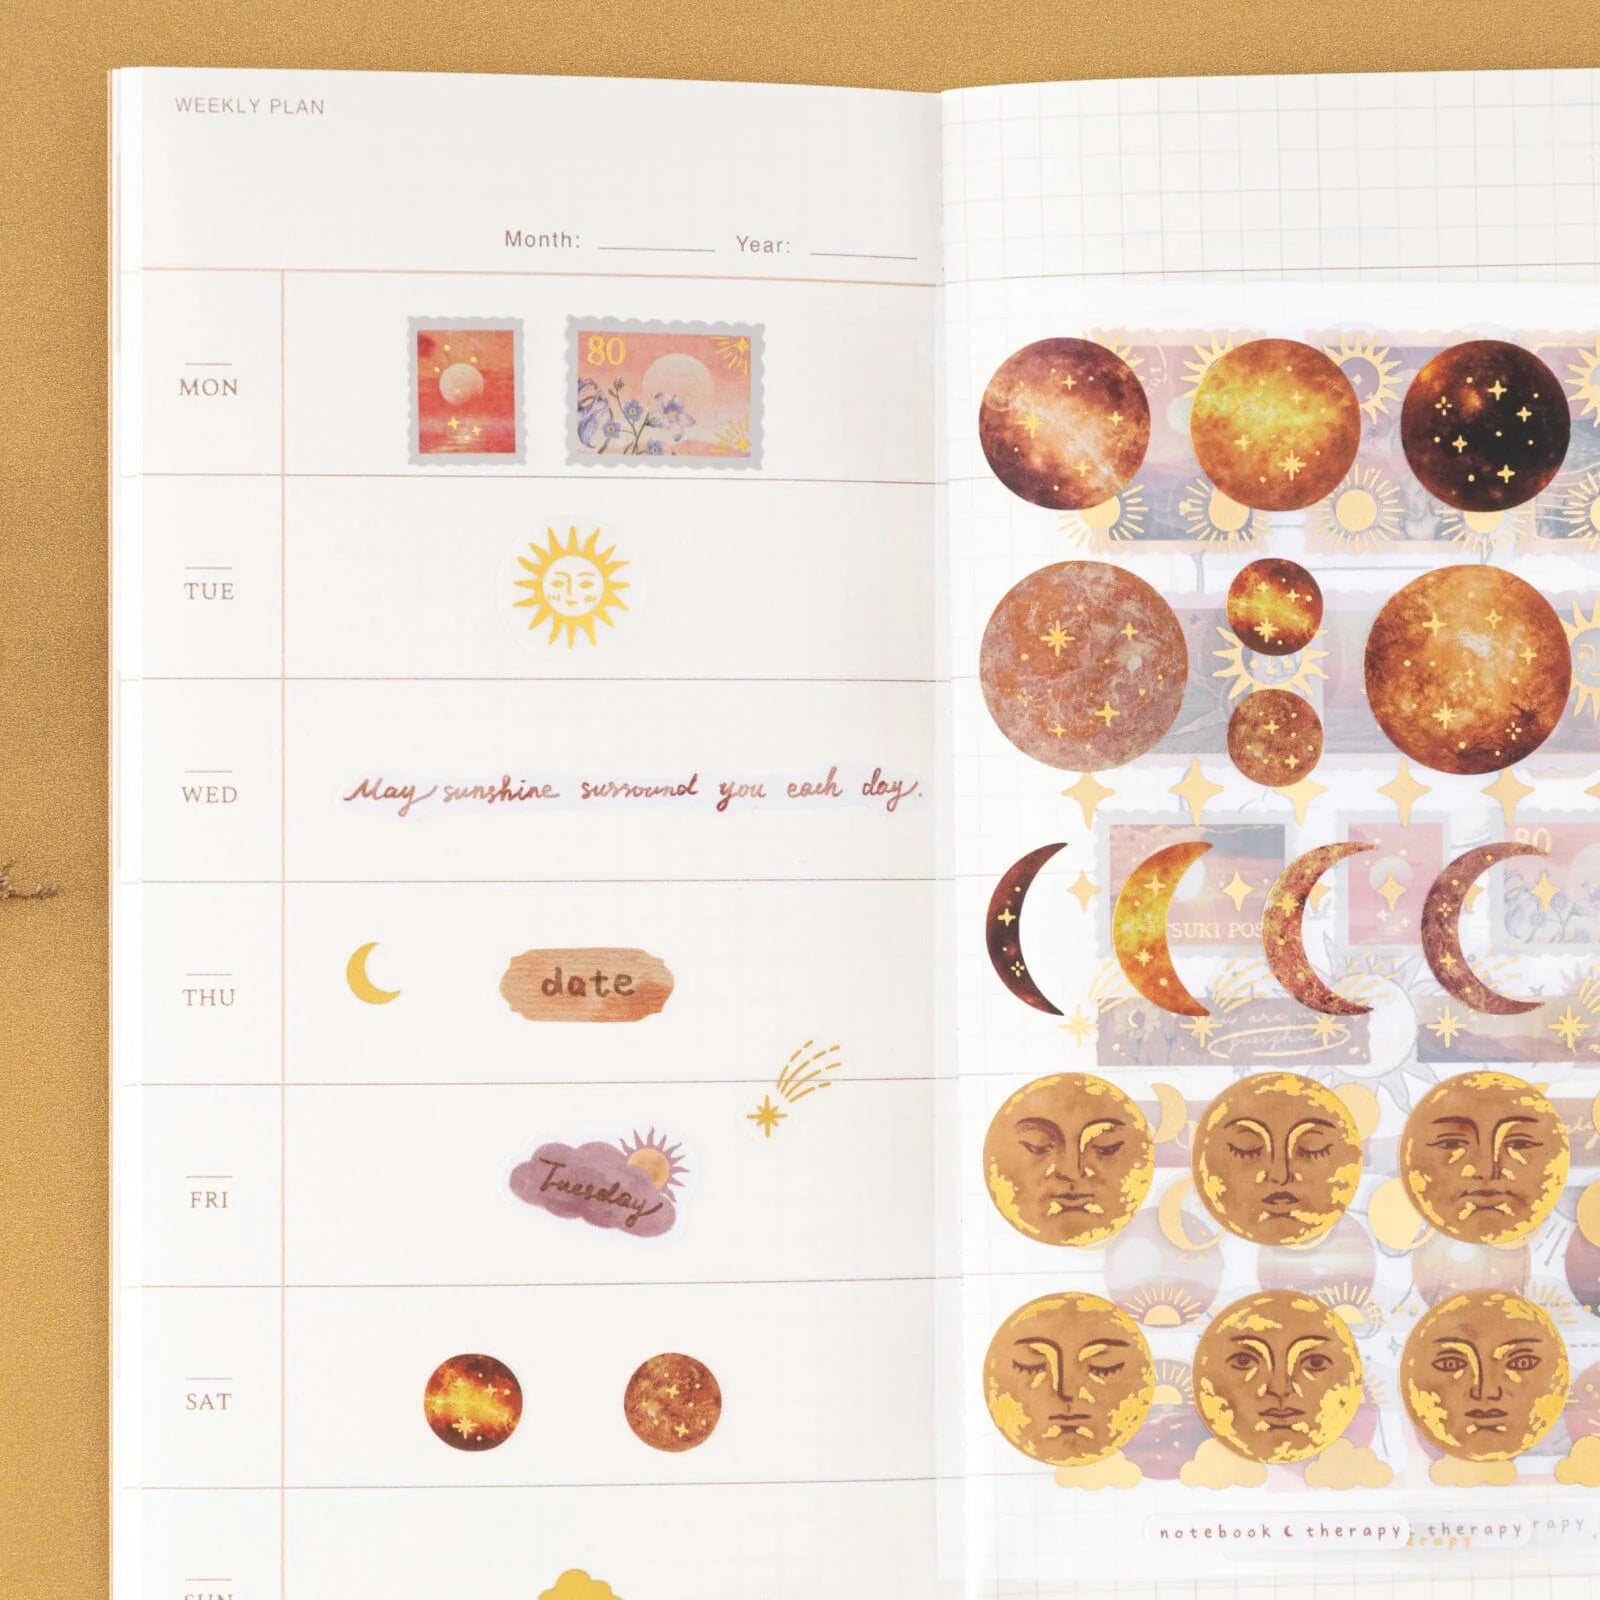 WEEKLY PLAN
Month:
Year:
MON
80
TUE
WED
May sunshine surround you each day.
THU
date
FRI
Tuesday
SAT
SUN
80
TSUKI POS
sunshine
notebook therapy
therapy
rapy
erapy